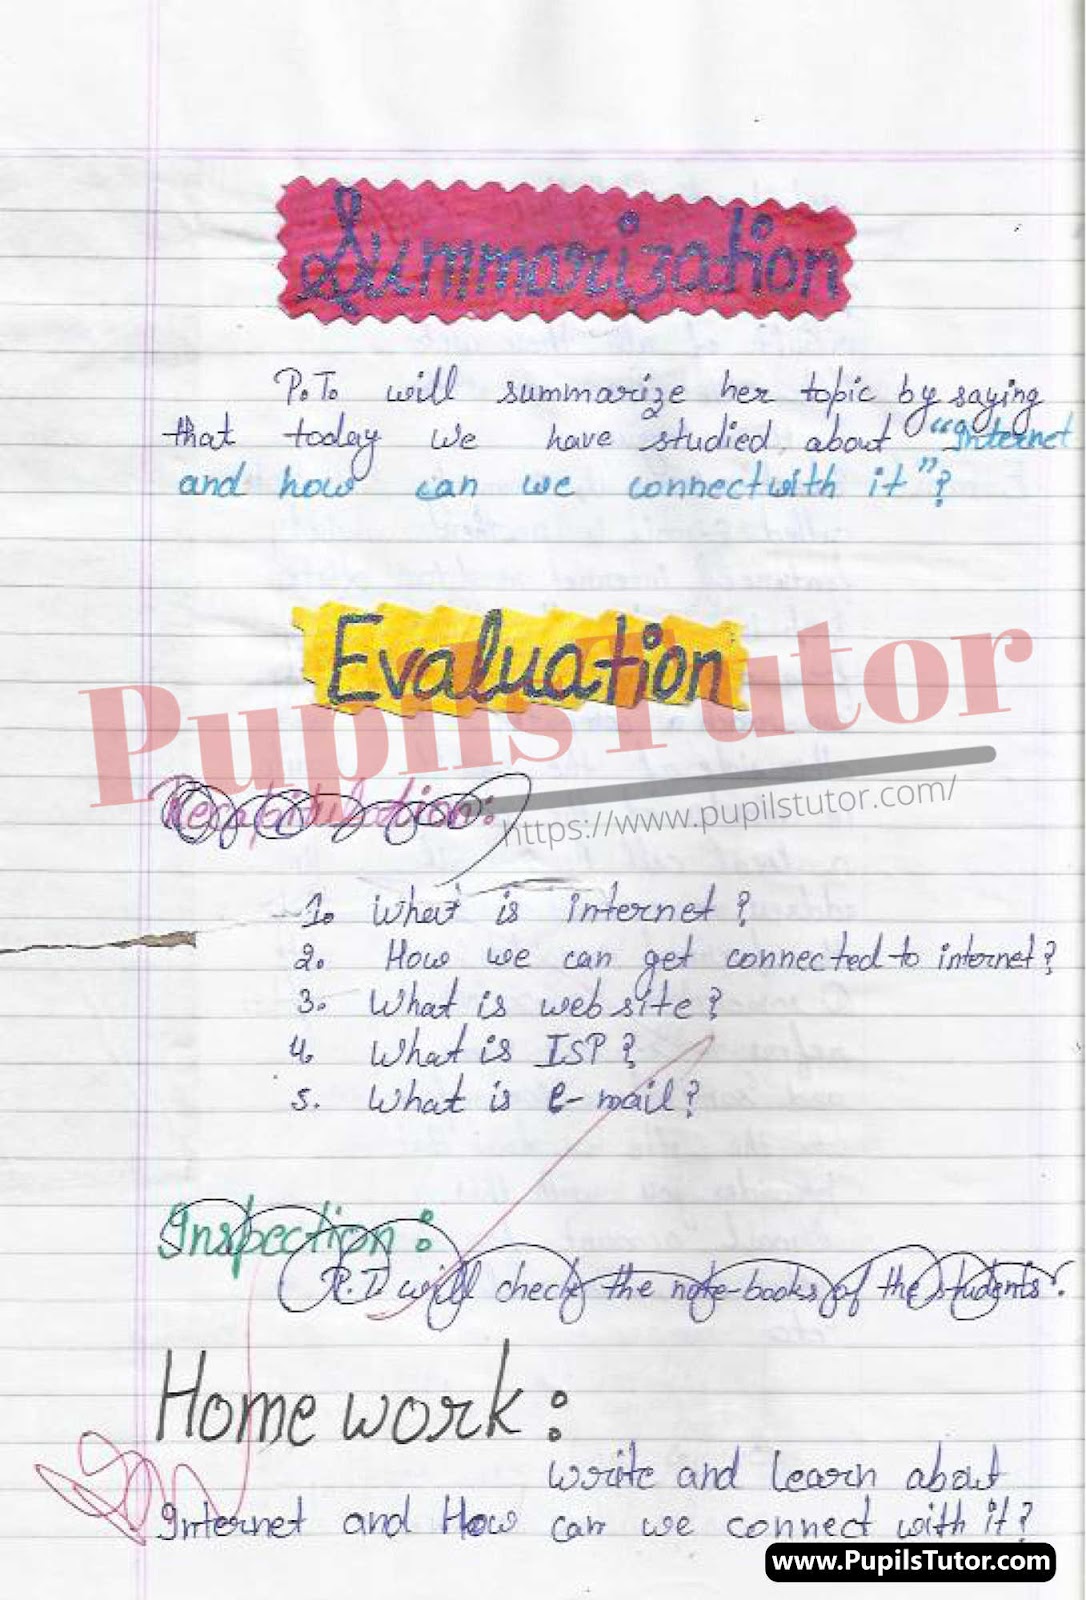 Summarization
P.T. will summarize her topic by saying
that today we have studied about "Internet
and how can we connect with it"?
Evaluation
PupilsTutor
https://www.pupilstutor.com/
Recapitulation:
1. What is internet?
2. How we can get connected to internet?
3. What is web site?
4. What is ISP?
5. What is e-mail?
Inspection:
P.T will check the note-books of the students.
Home work:
Write and learn about
Internet and How can we connect with it?
www.PupilsTutor.com